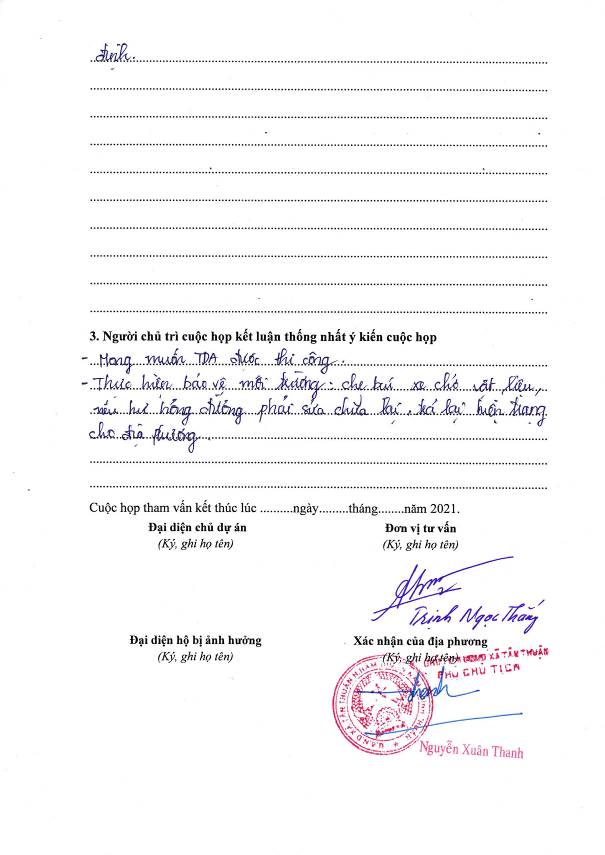 định.
3. Người chủ trì cuộc họp kết luận thống nhất ý kiến cuộc họp
- Mong muốn TDA được thi công.
- Thực hiện bảo vệ môi trường: che bụi xe chở vật liệu,
nếu hư hỏng đường phải sửa chữa lại, trả lại hiện trạng
cho địa phương.
Cuộc họp tham vấn kết thúc lúc ...........ngày.........tháng........năm 2021.
Đại diện chủ dự án Đơn vị tư vấn
(Ký, ghi họ tên) (Ký, ghi họ tên)
Trịnh Ngọc Thắng
Đại diện hộ bị ảnh hưởng Xác nhận của địa phương
(Ký, ghi họ tên) (Ký, ghi họ tên)
XÃ TÂN THUẬN
PHÓ CHỦ TỊCH
U.B.N.D XÃ TÂN THUẬN
Nguyễn Xuân Thanh